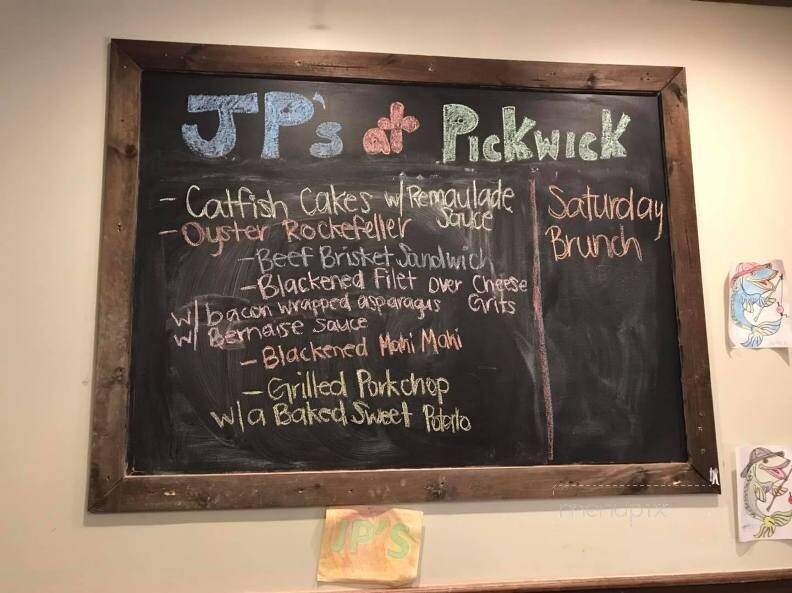 JP's at Pickwick
- Catfish Cakes w/ Remaulade Sauce
- Oyster Rockefeller
- Beef Brisket Sandwich
- Blackened Filet over Cheese Grits
w/ bacon wrapped asparagus
w/ Bernaise sauce
- Blackened Mahi Mahi
- Grilled Porkchop
w/ a Baked Sweet Potato
Saturday
Brunch
JP'S
menupix